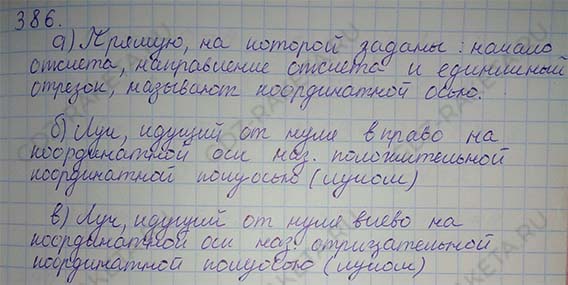 386.
а) Прямую, на которой заданы: начало
отсчета, направление отсчета и единичный
отрезок, называют координатной осью.
б) Луч, идущий от нуля вправо на
координатной оси наз. положительной
координатной полуосью (лучом)
в) Луч, идущий от нуля влево на
координатной оси наз. отрицательной
координатной полуосью (лучом)